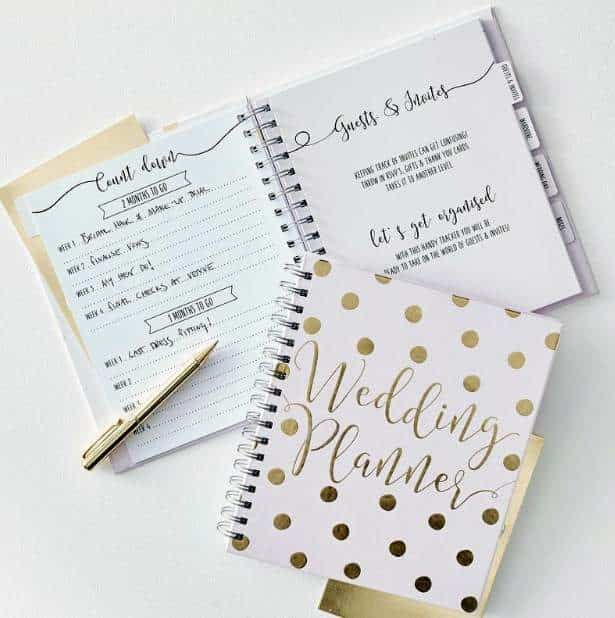 Count down
2 MONTHS TO GO
WEEK 1. BRIDAL HAIR & MAKE-UP TRIAL
WEEK 2. FINALISE VOWS
WEEK 3. MY HEN DO!
WEEK 4. FINAL CHECKS AT VENUE
1 MONTHS TO GO
WEEK 1. LAST DRESS FITTING!
WEEK 2.
WEEK 3.
WEEK 4
Guests & Invites
KEEPING TRACK OF INVITES CAN GET CONFUSING!
THROW IN RSVP'S, GIFTS & THANK YOU CARDS
TAKES IT TO ANOTHER LEVEL.
let's get organised
WITH THIS HANDY TRACKER YOU WILL BE
READY TO TAKE ON THE WORLD OF GUESTS & INVITES!
GUESTS & INVITES
Wedding
Planner